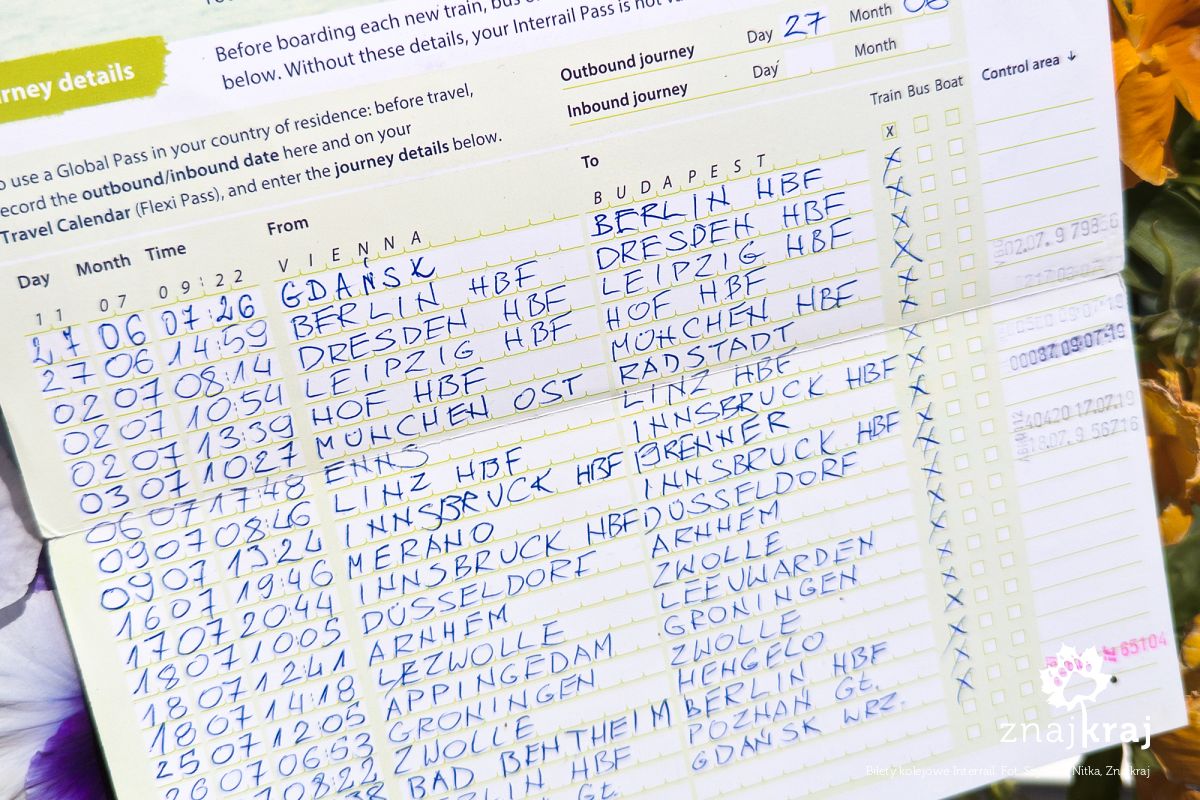 Before boarding each new train, bus
below. Without these details, your Interrail Pass is not
Journey details
Outbound journey Day 27 Month 06
Inbound journey Day Month
to use a Global Pass in your country of residence: before travel,
record the outbound/inbound date here and on your
Travel Calendar (Flexi Pass), and enter the journey details below.
Day Month Time From To Train Bus Boat Control area ↓
11 07 09:22 VIENNA BUDAPEST x
27 06 07:26 GDAŃSK BERLIN HBF X
27 06 14:59 BERLIN HBF DRESDEN HBF X
02 07 08:14 DRESDEN HBF LEIPZIG HBF X
02 07 10:54 LEIPZIG HBF HOF HBF X
02 07 13:39 HOF HBF MÜNCHEN HBF X
03 07 10:27 MÜNCHEN OST RADSTADT X
06 07 17:48 ENNS LINZ HBF X
09 07 08:46 LINZ HBF INNSBRUCK HBF X
09 07 13:24 INNSBRUCK HBF BRENNER X
16 07 19:46 MERANO INNSBRUCK HBF X
17 07 20:44 INNSBRUCK HBF DÜSSELDORF X
18 07 10:05 DÜSSELDORF ARNHEM X
18 07 12:41 ARNHEM ZWOLLE X
18 07 14:18 ZWOLLE LEEUWARDEN X
25 07 12:05 APPINGEDAM GRONINGEN X
26 07 06:53 GRONINGEN ZWOLLE X
08:22 ZWOLLE HENGELO X
BAD BENTHEIM BERLIN HBF X
HBF POZNAŃ Gł. X
Gł. GDAŃSK WRZ.
65104
znajkraj
Bilety kolejowe Interrail. Fot. Nitka, Znajkraj